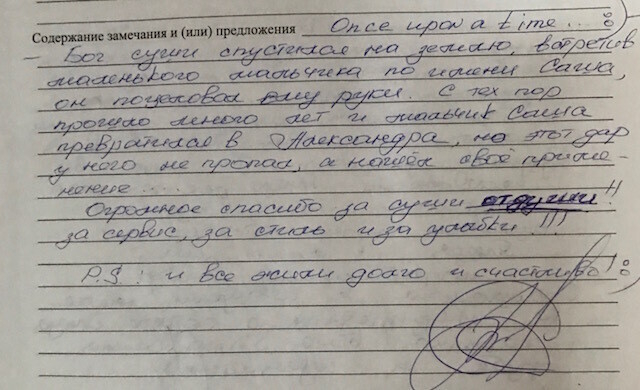 Содержание замечания и (или) предложения Once upon a time...:)
– Бог суши спустился на землю, встретив
маленького мальчика по имени Саша,
он поцеловал ему руки. С тех пор
прошло много лет и мальчик Саша
превратился в Александра, но этот дар
у него не пропал, а нашёл своё приме-
нение....
Огромное спасибо за суши от души!!
за сервис, за стиль и за улыбки!!!
P.S: и все жили долго и счастливо!:)